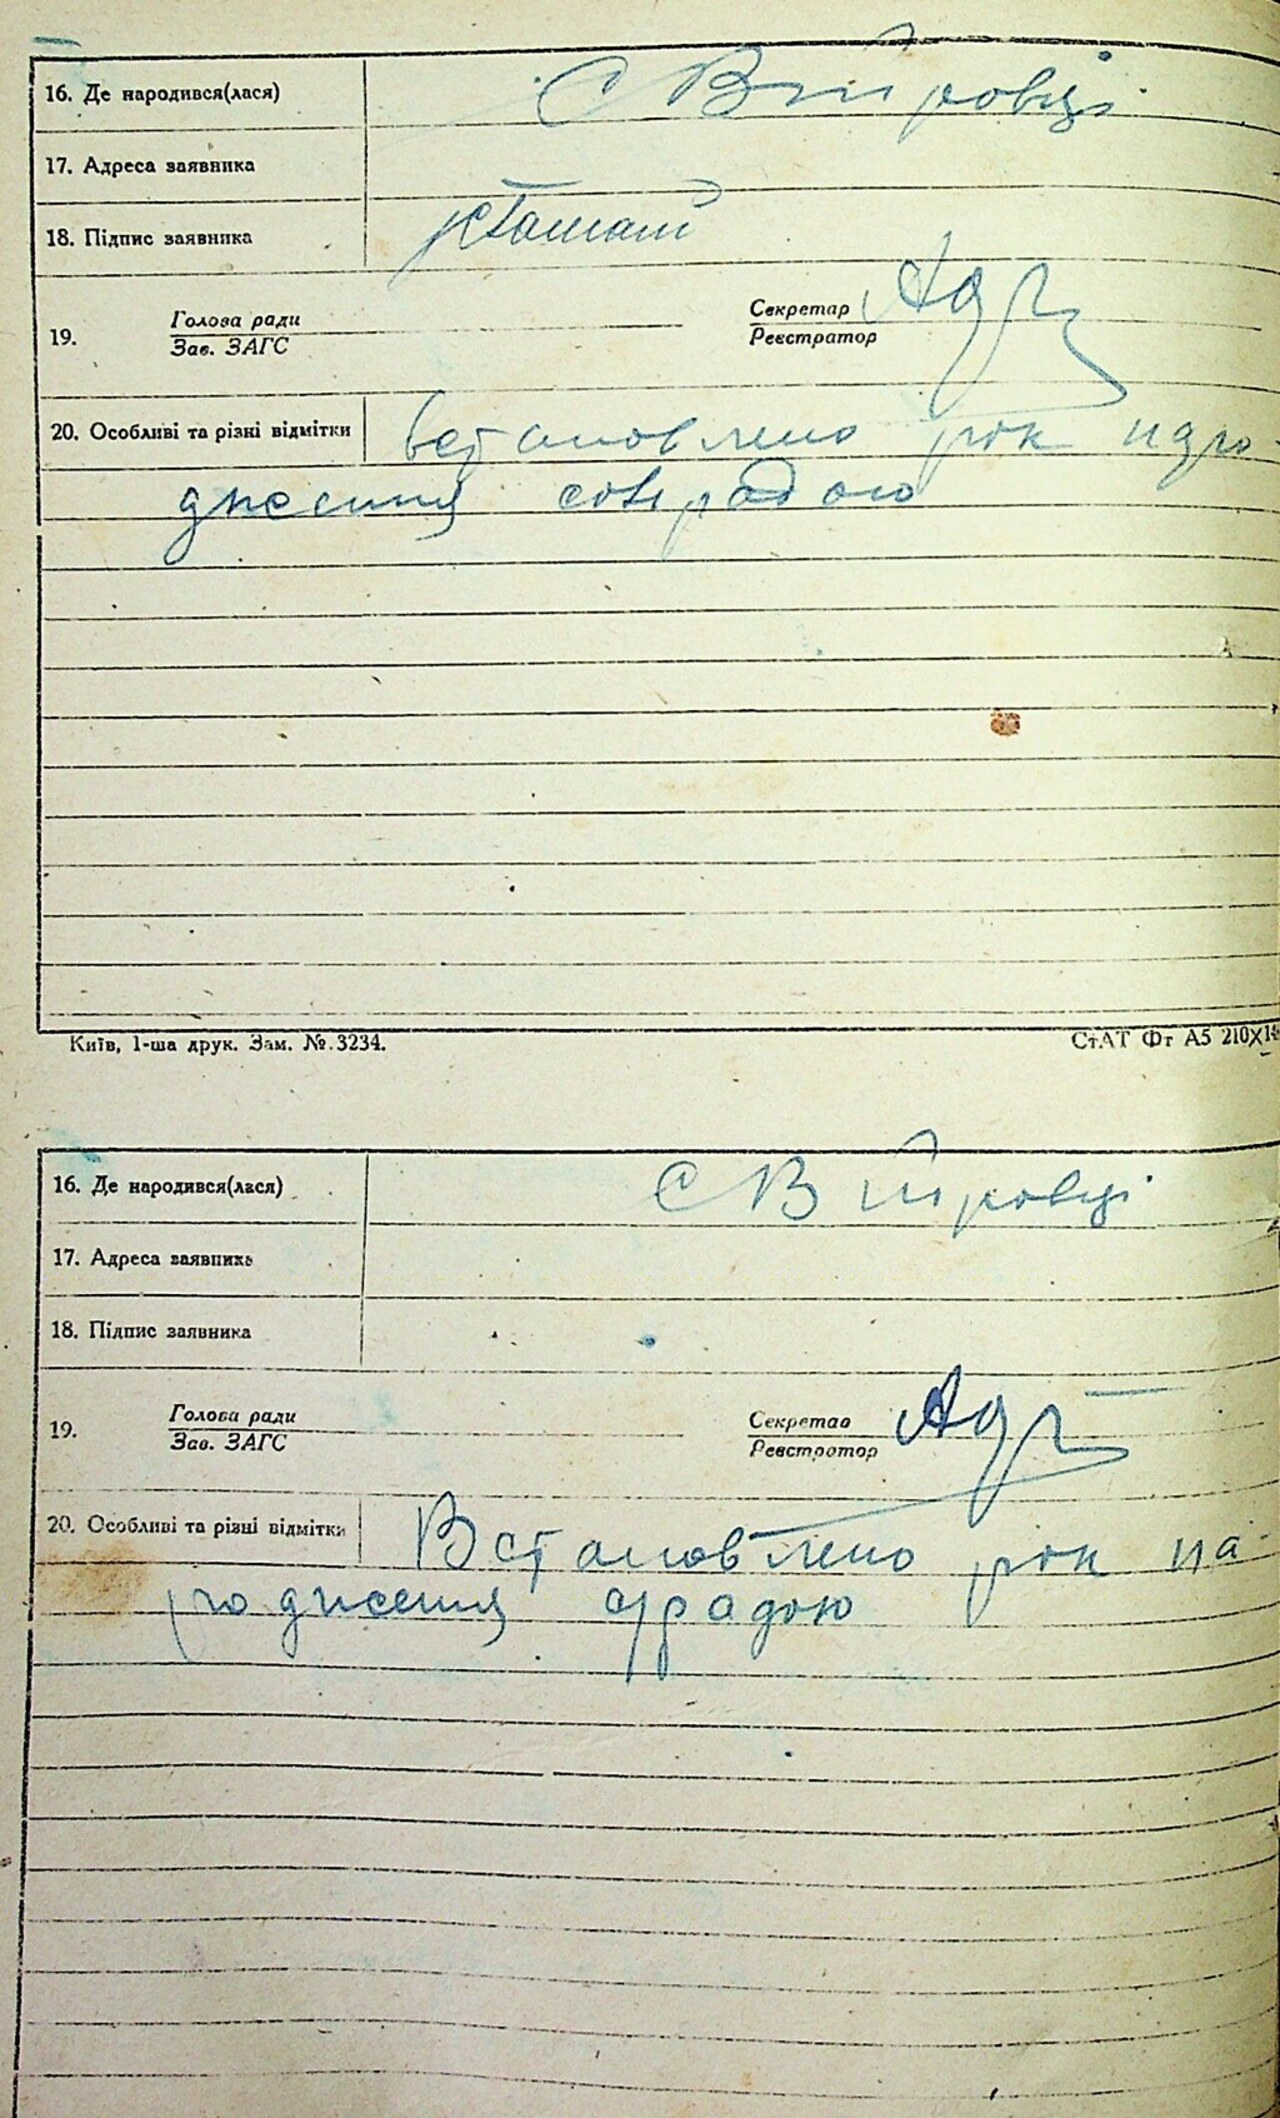 16. Де народився(лася) с Вітровці
17. Адреса заявника
18. Підпис заявника
19. Голова ради Секретар
Зав. ЗАГС Реєстратор
20. Особливі та різні відмітки встановлено рік наро-
дження
Київ, 1-ша друк. Зам. №.3234. СтАТ Фт А5 210X14
16. Де народився(лася) с Вітровці
17. Адреса заявника
18. Підпис заявника
19. Голова ради Секретар
Зав. ЗАГС Реєстратор
20. Особливі та різні відмітки Встановлено рік на-
родження с/радою